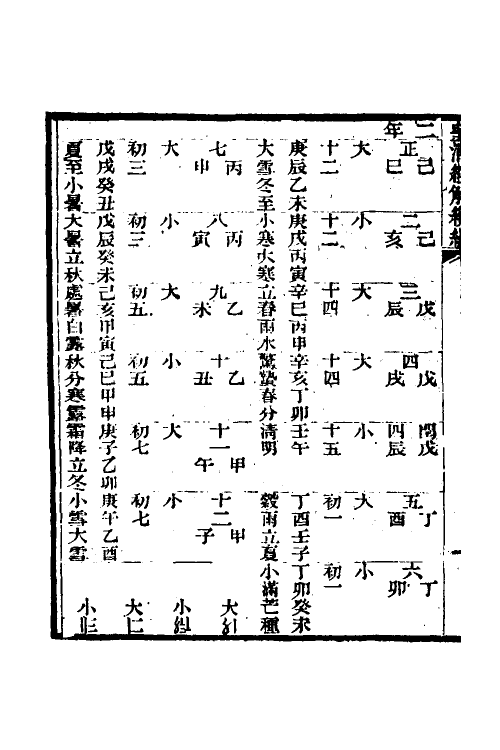 皇清經解續編
二年
正 己巳 二 己亥 三 戊辰 四 戊戌 閏四 戊辰 五 丁酉 六 丁卯
大 小 大 大 小 大 小
十二 十二 十四 十四 十五 初一 初一
庚辰乙未庚戌丙寅辛巳丙申辛亥丁卯壬午 丁酉壬子丁卯癸未
大雪冬至小寒大寒立春雨水驚蟄春分清明 穀雨立夏小滿芒種
七 丙申 八 丙寅 九 乙未 十 乙丑 十一 甲午 十二 甲子
大 小 大 小 大 小
初三 初三 初五 初五 初七 初七
戊戌癸丑戊辰癸未己亥甲寅己巳甲申庚子乙卯庚午乙酉
夏至小暑大暑立秋處暑白露秋分寒露霜降立冬小雪大雪
大 小 大 小